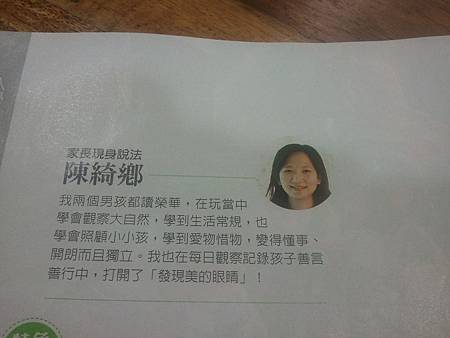 家長現身說法
陳綺鄉
我兩個男孩都讀榮華，在玩當中
學會觀察大自然，學到生活常規，也
學會照顧小小孩，學到愛物惜物，變得懂事、
開朗而且獨立。我也在每日觀察記錄孩子善言
善行中，打開了「發現美的眼睛」！